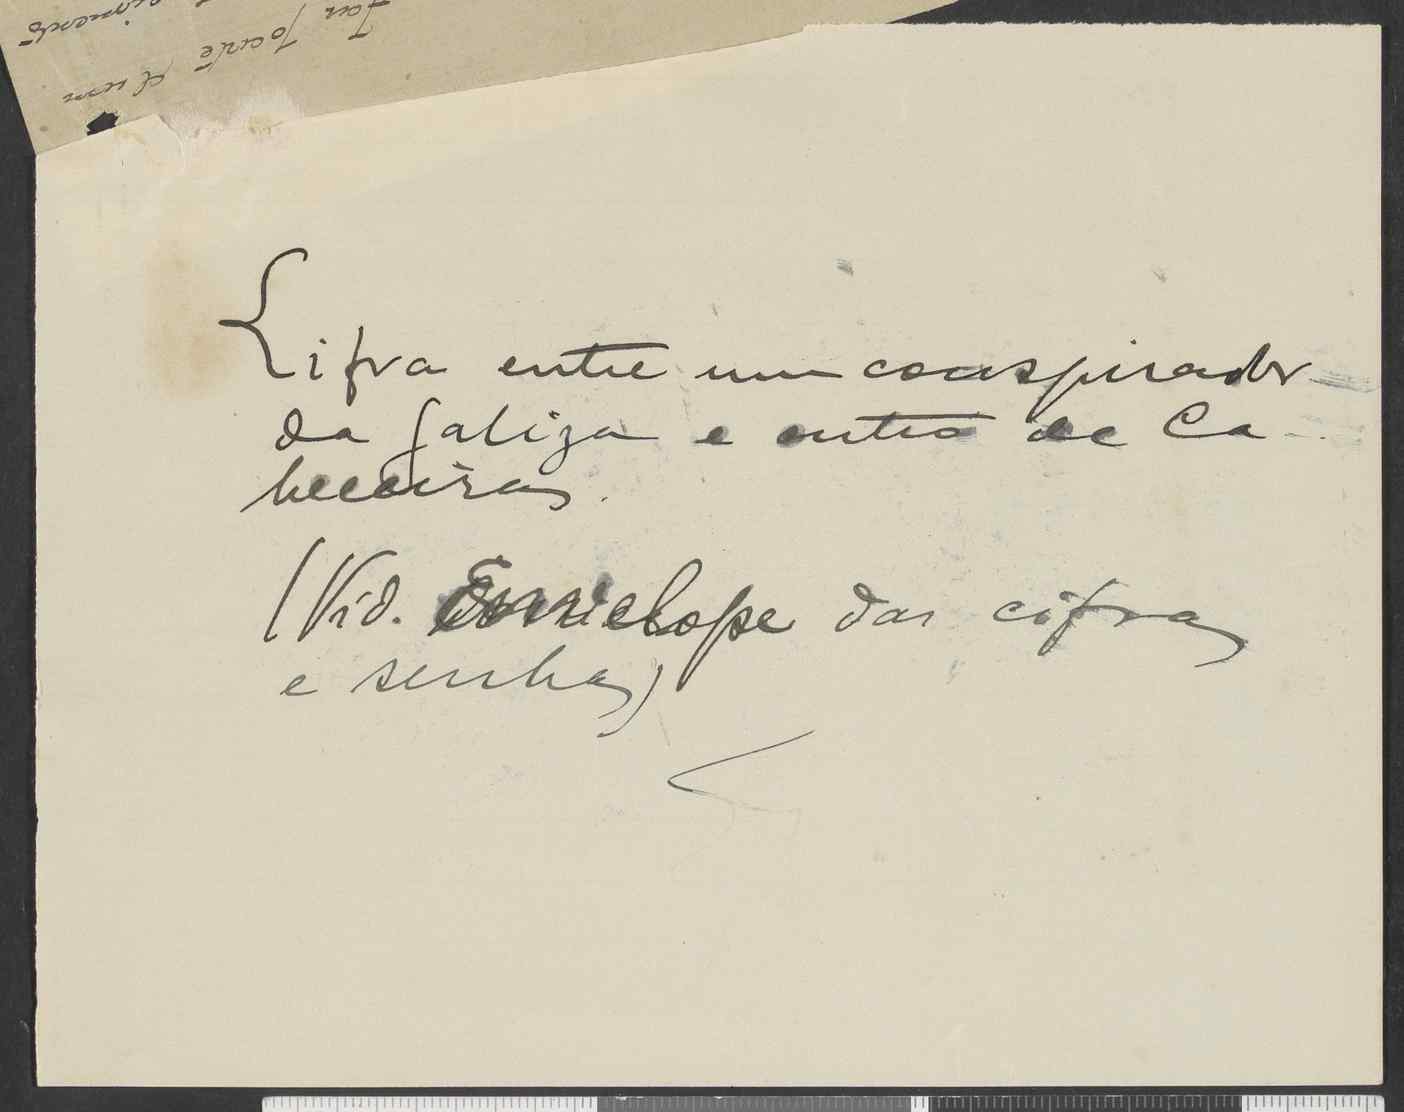 Cifra entre um conspirador
da Galiza e outro de Ca-
beceiras.
(Vid. Envielope das cifras
e senhas)